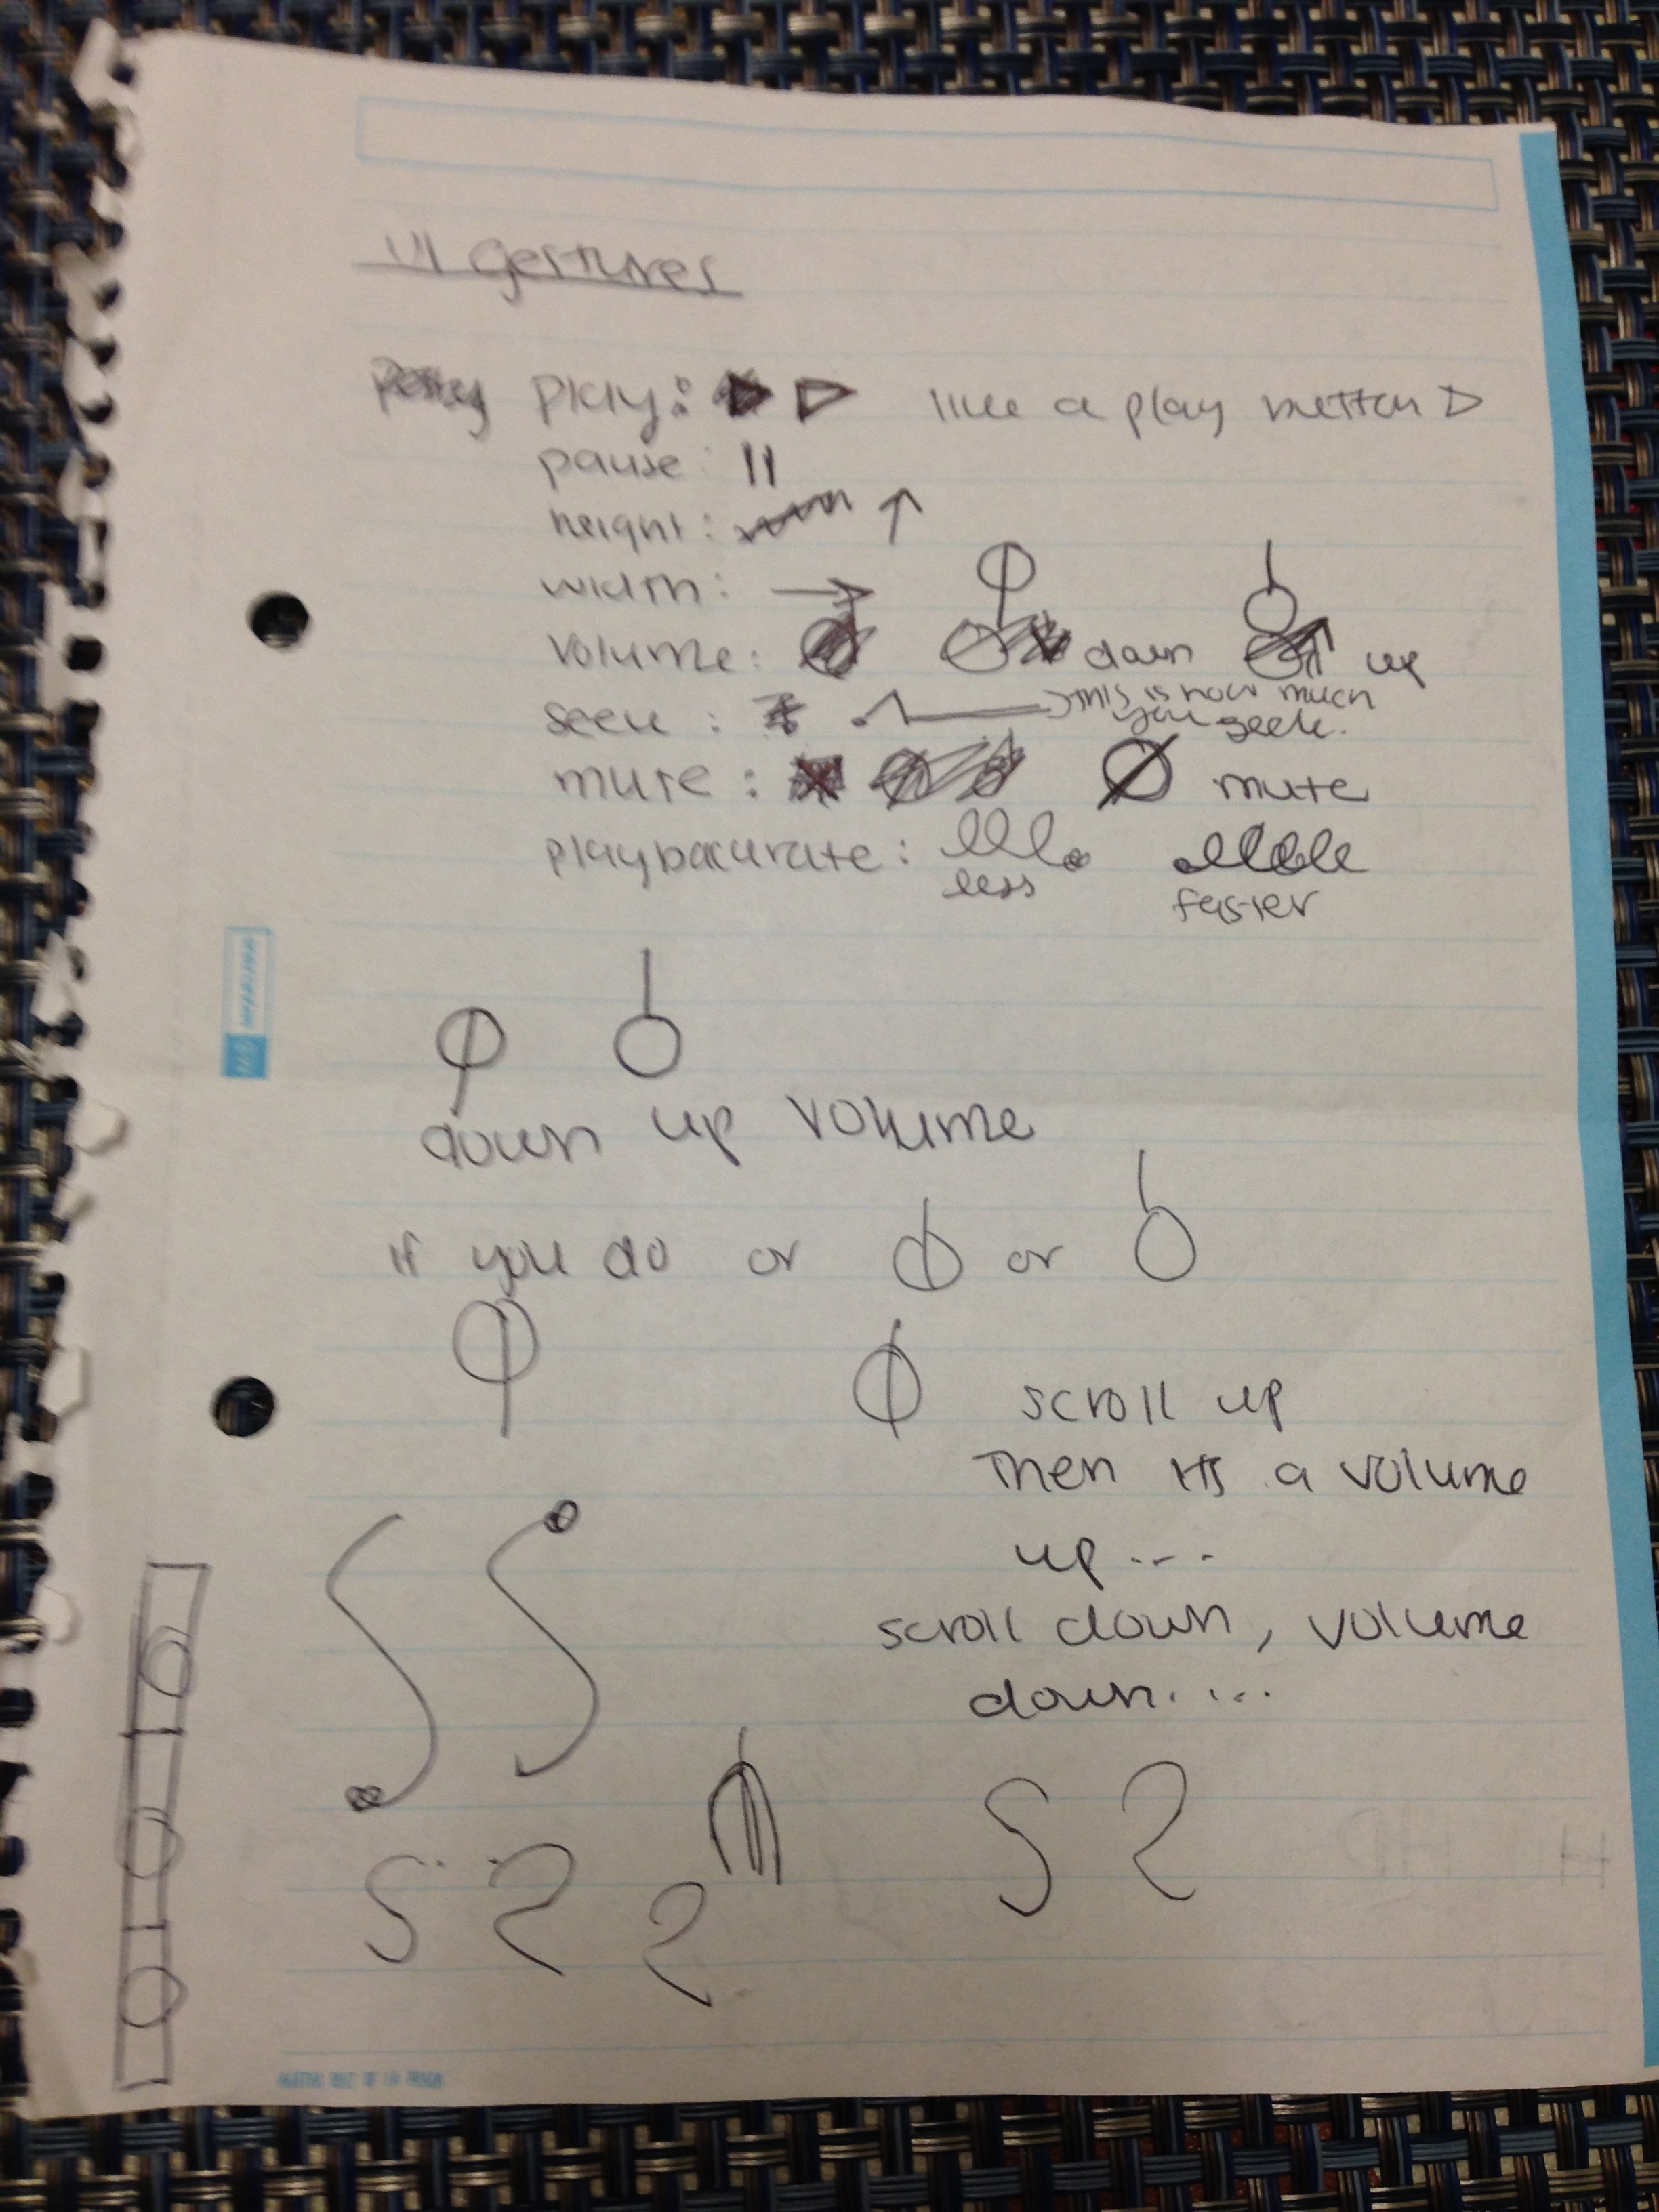 UI gestures
play: like a play button
pause: 11
height:
width:
volume: down up
seek: this is how much
you seek.
mute: mute
playbackrate:
less faster
down up volume
if you do or or
scroll up
Then its a volume
up...
scroll down, volume
down....
S 2
S 2 2